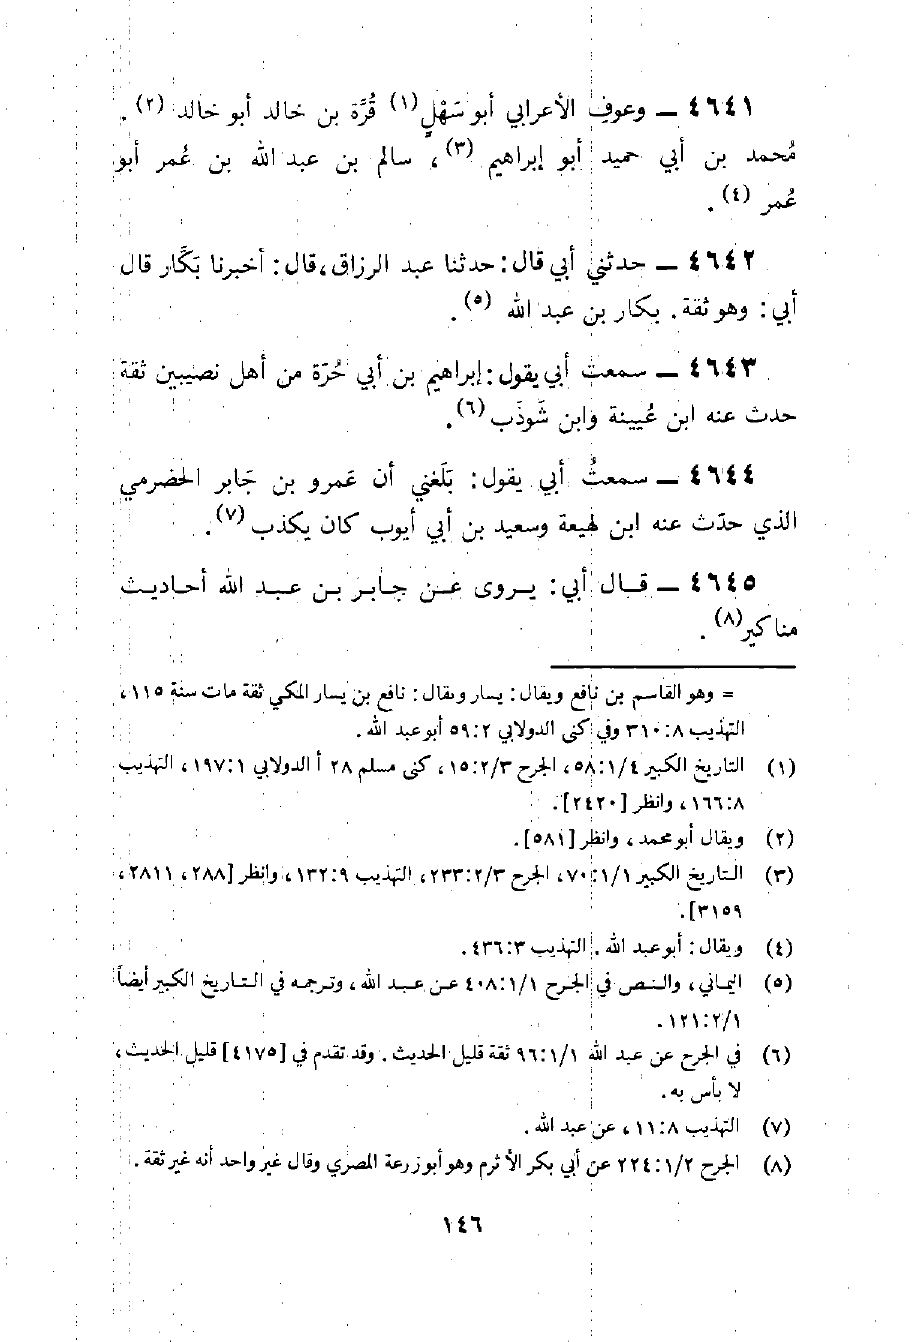 ٤٦٤١ ـ وعوف الأعرابي أبو سَهْلٍ (١) قُرَّة بن خالد أبو خالد (٢) .
مُحمد بن أبي حميد أبو إبراهيم (٣) ، سالم بن عبد الله بن عُمر أبو
عُمر (٤) .
٤٦٤٢ ـ حدثني أبي قال : حدثنا عبد الرزاق ، قال : أخبرنا بَكَّار قال
أبي : وهو ثقة . بكار بن عبد الله (٥) .
٤٦٤٣ ـ سمعت أبي يقول : إبراهيم بن أبي حُرّة من أهل نصيبين ثقة
حدث عنه ابن عُيينة وابن شَوذَب (٦) .
٤٦٤٤ ـ سمعتُ أبي يقول : بَلَغني أن عَمرو بن جَابر الحضرمي
الذي حدّث عنه ابن لهيعة وسعيد بن أبي أيوب كان يكذب (٧) .
٤٦٤٥ ـ قال أبي : يروى عن جابر بن عبد الله أحاديث
مناكير (٨) .
= وهو القاسم بن نافع ويقال : يسار ويقال : نافع بن يسار المكي ثقة مات سنة ١١٥ ،
التهذيب ٨ : ٣١٠ وفي كنى الدولابي ٢ : ٥٩ أبو عبد الله .
(١) التاريخ الكبير ٤/١ : ٥٨ ، الجرح ٢/٣ : ١٥ ، كنى مسلم ٢٨ أ الدولابي ١ : ١٩٧ ، التهذيب
٨ : ١٦٦ ، وانظر [٢٤٢٠] .
(٢) ويقال أبو محمد ، وانظر [٥٨١] .
(٣) التاريخ الكبير ١/١ : ٧٠ ، الجرح ٢/٣ : ٢٣٣ ، التهذيب ٩ : ١٣٢ ، وانظر [٢٨٨ ، ٢٨١١ ،
٣١٥٩] .
(٤) ويقال : أبو عبد الله . التهذيب ٣ : ٤٣٦ .
(٥) اليماني ، والنص في الجرح ١/١ : ٤٠٨ عن عبد الله ، وترجمه في التاريخ الكبير أيضاً
٢/١ : ١٢١ .
(٦) في الجرح عن عبد الله ١/١ : ٩٦ ثقة قليل الحديث . وقد تقدم في [٤١٧٥] قليل الحديث ،
لا بأس به .
(٧) التهذيب ٨ : ١١ ، عن عبد الله .
(٨) الجرح ١/٢ : ٢٢٤ عن أبي بكر الأثرم وهو أبو زرعة المصري وقال غير واحد أنه غير ثقة .
١٤٦